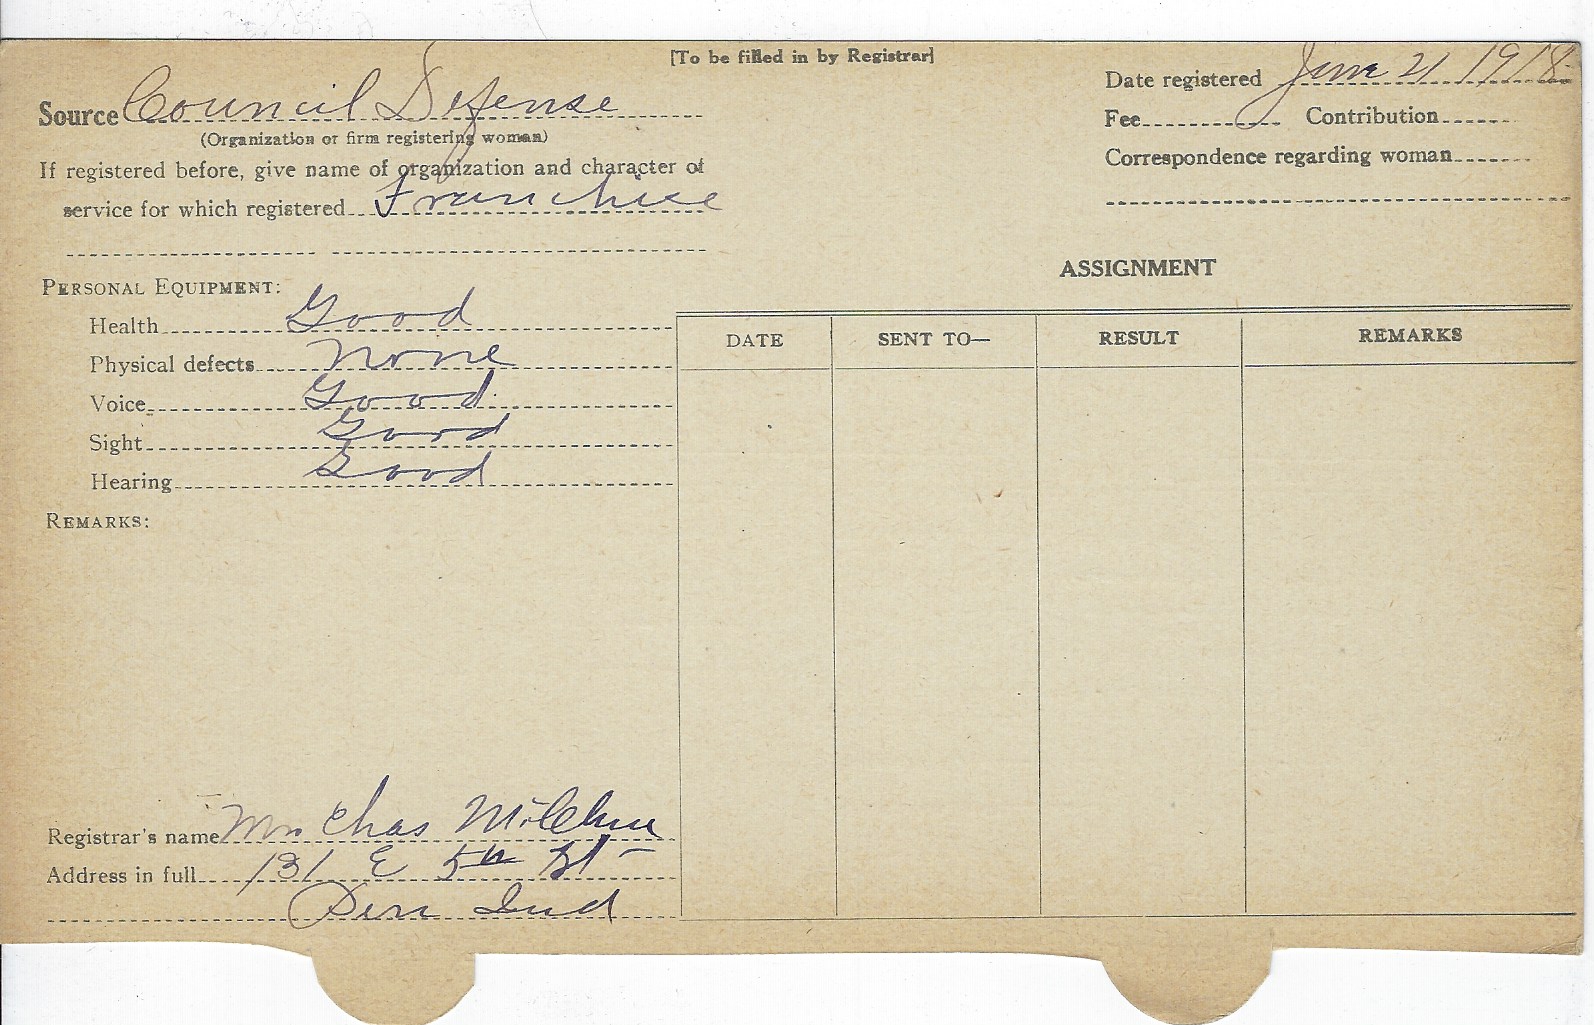 [To be filled in by Registrar]
Source Council Defense
(Organization or firm registering woman)
If registered before, give name of organization and character of
service for which registered Franchise
Date registered June 21 1918
Fee Contribution
Correspondence regarding woman
PERSONAL EQUIPMENT:
Health Good
Physical defects none
Voice Good
Sight Good
Hearing Good
REMARKS:
ASSIGNMENT
DATE SENT TO— RESULT REMARKS
Registrar's name Mrs Chas
Address in full 131 E 5th St
Peru Ind